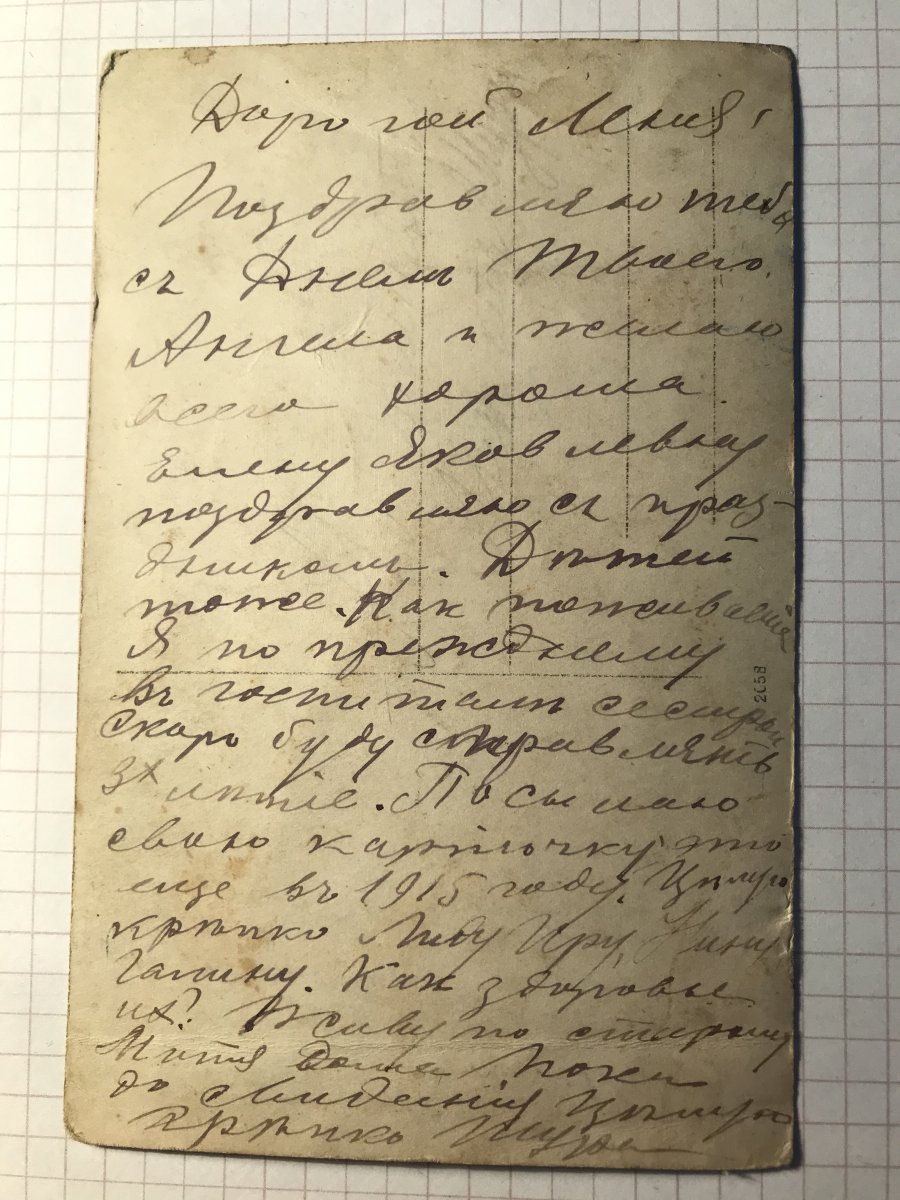 Дорогой Лёня!
Поздравляю тебя
съ Днемъ Твоего
Ангела и желаю
всего хороша
Елену Яковлевну
поздравляю съ праз-
дникомъ. Дѣтей
тоже. Какъ поживаете
Я по прежднему
въ госпиталѣ сестрой
скоро буду справлять
3х лѣтіе. Посылаю
свою карточку это
еще въ 1915 году. Цѣлую
крѣпко Иру, Нину
Галину. Как здоровье
их? Живу по старому
дома Пока
до свиданія Цѣлую
крѣпко Шура
2658